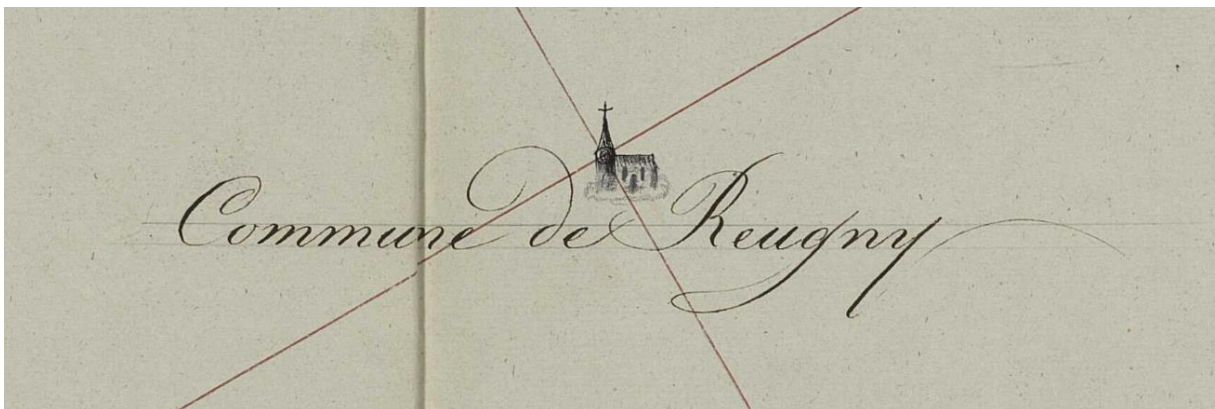 Commune de Reugny